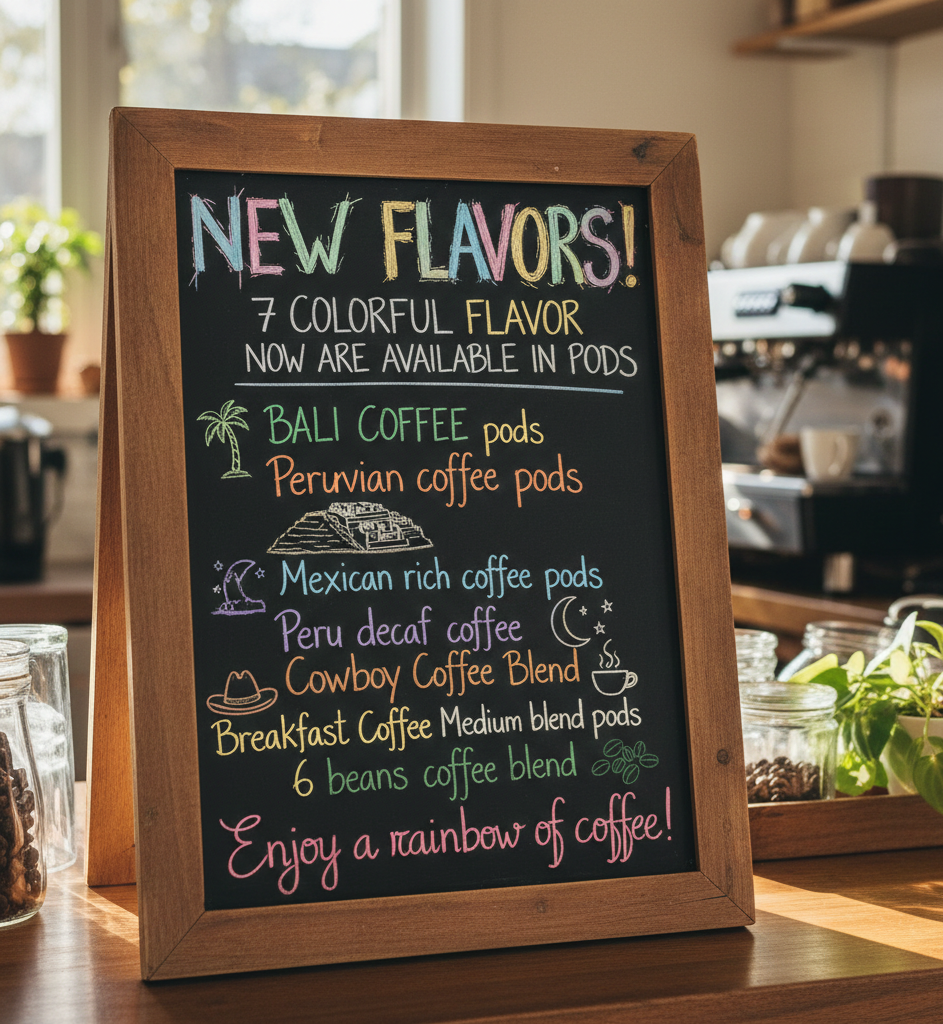 NEW FLAVORS!
7 COLORFUL FLAVOR
NOW ARE AVAILABLE IN PODS
BALI COFFEE pods
Peruvian coffee pods
Mexican rich coffee pods
Peru decaf coffee
Cowboy Coffee Blend
Breakfast Coffee Medium blend pods
6 beans coffee blend
Enjoy a rainbow of coffee!